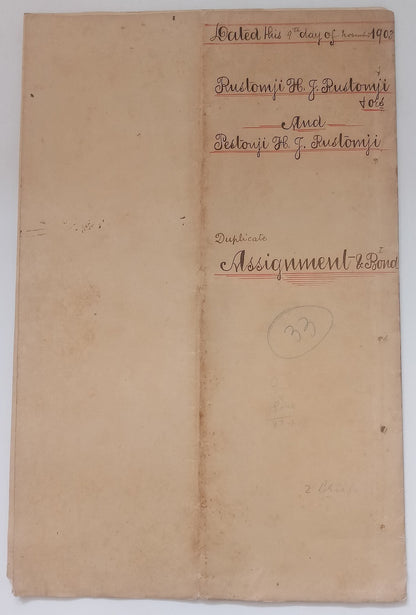 Dated this 9th day of November 1902
Rustomji H. J. Rustomji
& ors
And
Pestonji H. J. Rustomji
Duplicate
Assignment & Bond
33